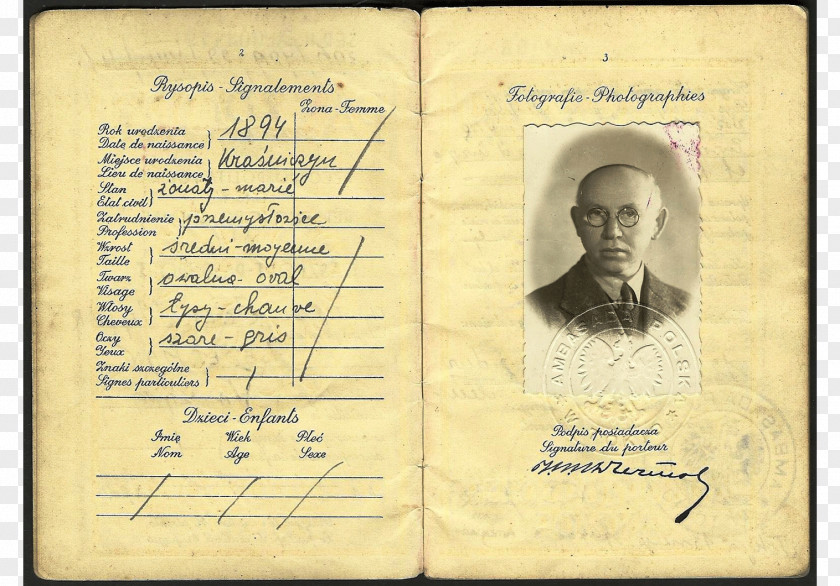 2
Rysopis - Signalements
Żona - Femme
Rok urodzenia
Date de naissance
1894
Miejsce urodzenia
Lieu de naissance
Kraśniczyn
Stan
Etat civil
żonaty - marié
Zatrudnienie
Profession
przemysłowiec
Wzrost
Taille
średni - moyenne
Twarz
Visage
owalna - oval
Włosy
Cheveux
Łysy - chauve
Oczy
Yeux
szare - gris
Znaki szczególne
Signes particuliers
Dzieci - Enfants
Imię Wiek Płeć
Nom Age Sexe
3
Fotografie - Photographies
AMBASADA POLSKA
Podpis posiadacza
Signature du porteur